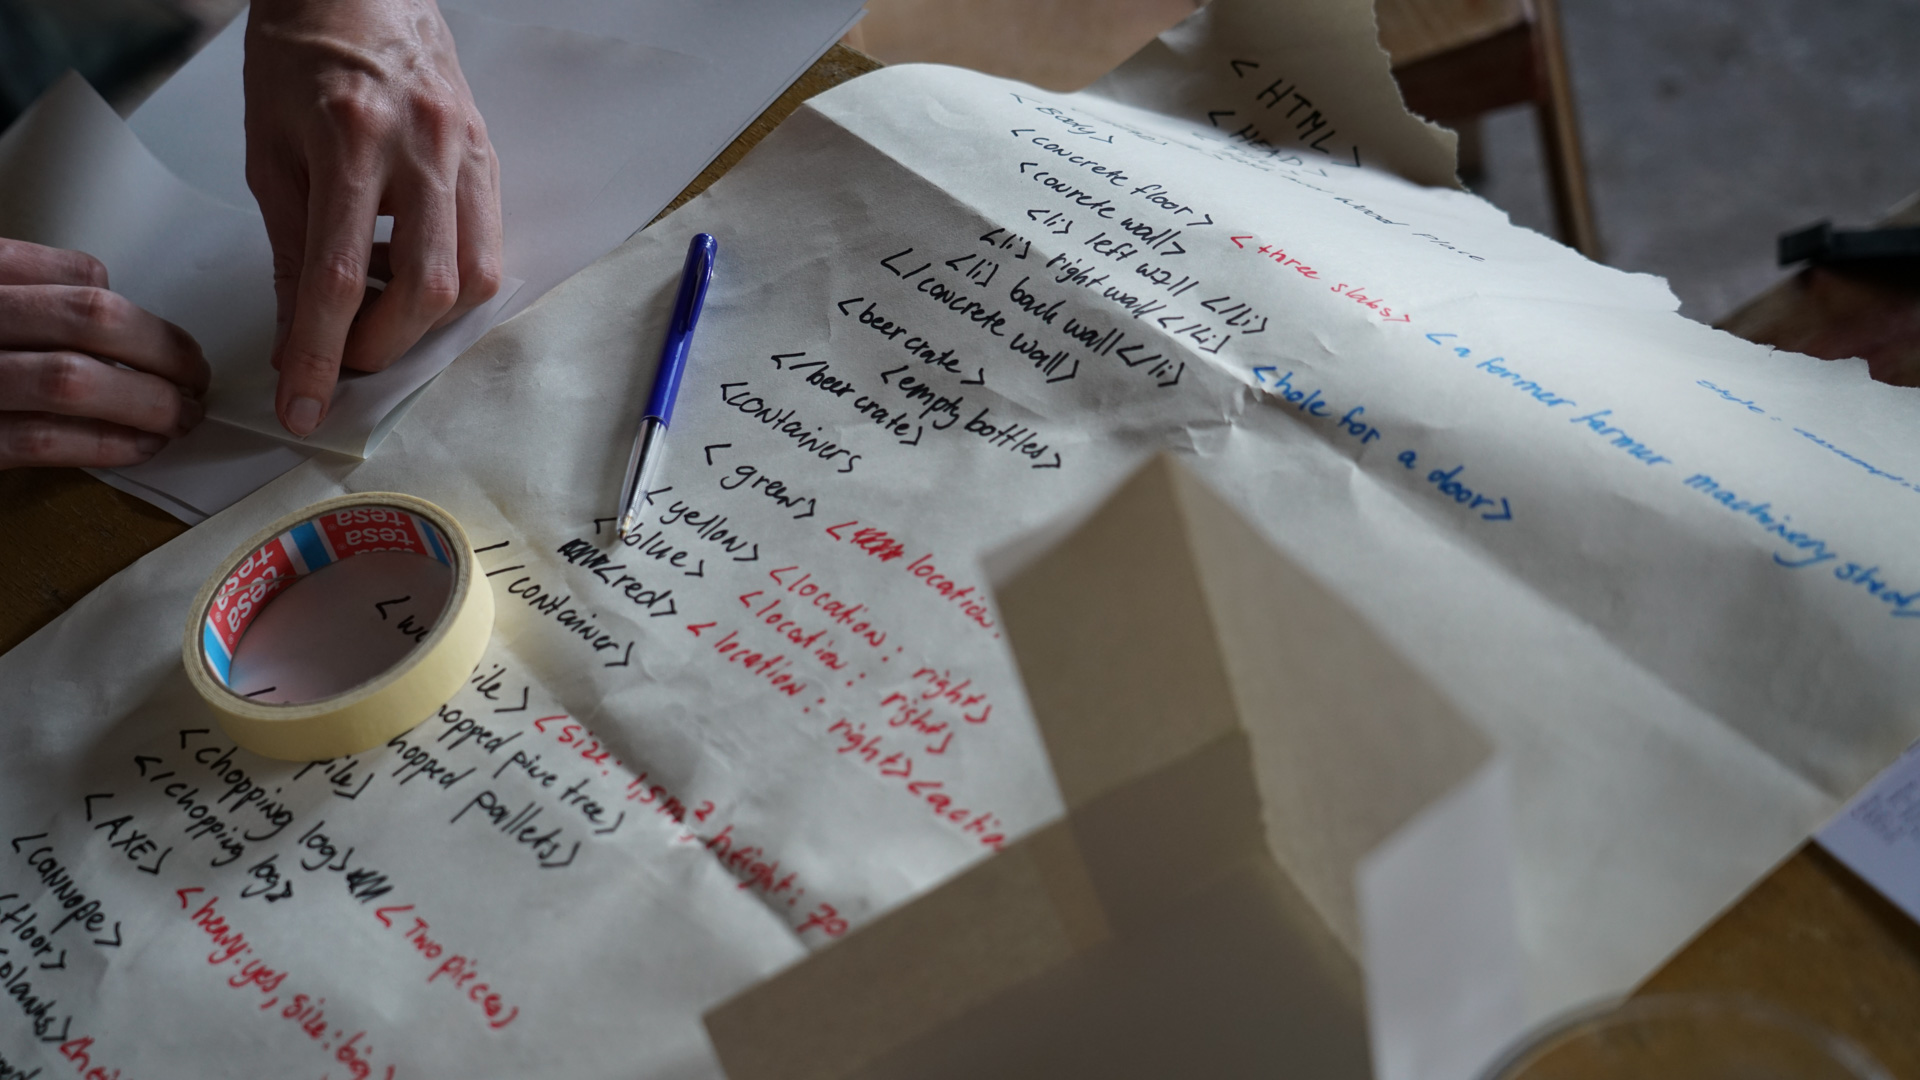 < HTML >
< HEAD >
<Body>
<concrete floor> <three slabs> <a former farmer machinery shed>
<conrete wall>
<li> left wall </li>
<li> right wall </li>
<li> back wall </li> <hole for a door>
</concrete wall>
<beer crate>
<empty bottles>
</beer crate>
<containers
< green> < location:
<yellow> <location: right>
<blue> <location: right>
<red> <location: right> <action
//container>
pile> <size: 1,5m², height: 70
hopped pine tree>
hopped pallets>
pile>
<chopping log> <Two pieces>
</chopping log>
<AXE> <heavy: yes, size: big>
<cannope>
<floor>
planks>
tesa
tesa
tesa
tesa
style: